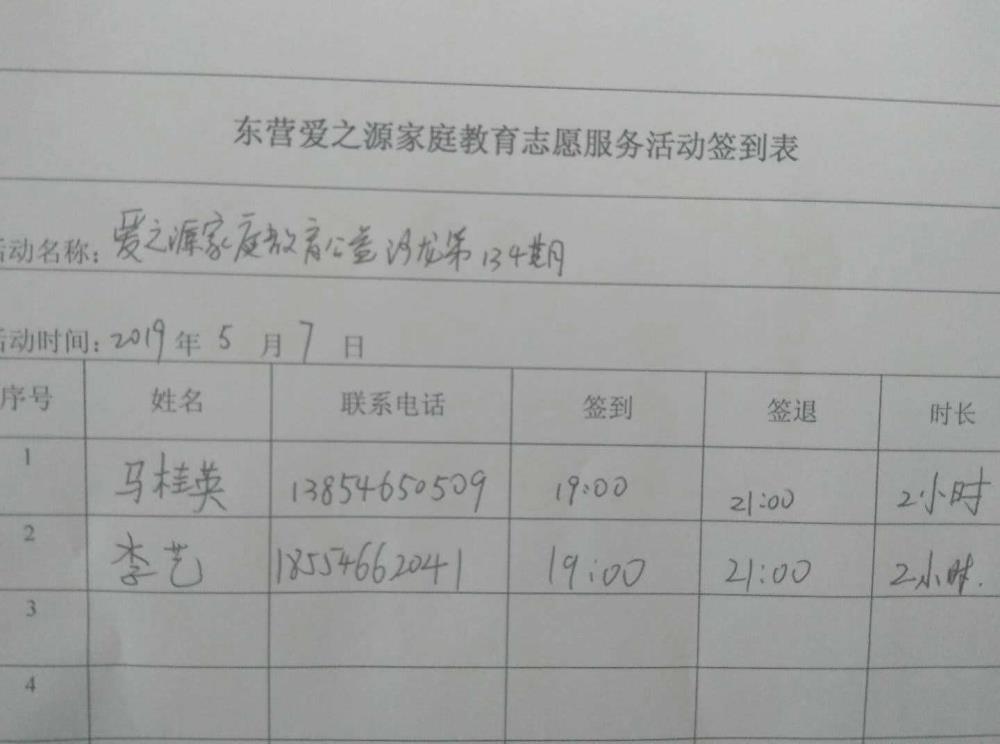 东营爱之源家庭教育志愿服务活动签到表
活动名称：爱之源家庭教育公益沙龙第134期
活动时间：2019年5月7日
序号 姓名 联系电话 签到 签退 时长
1 马桂英 13854650509 19:00 21:00 2小时
2 李艺 18554662041 19:00 21:00 2小时.
3
4